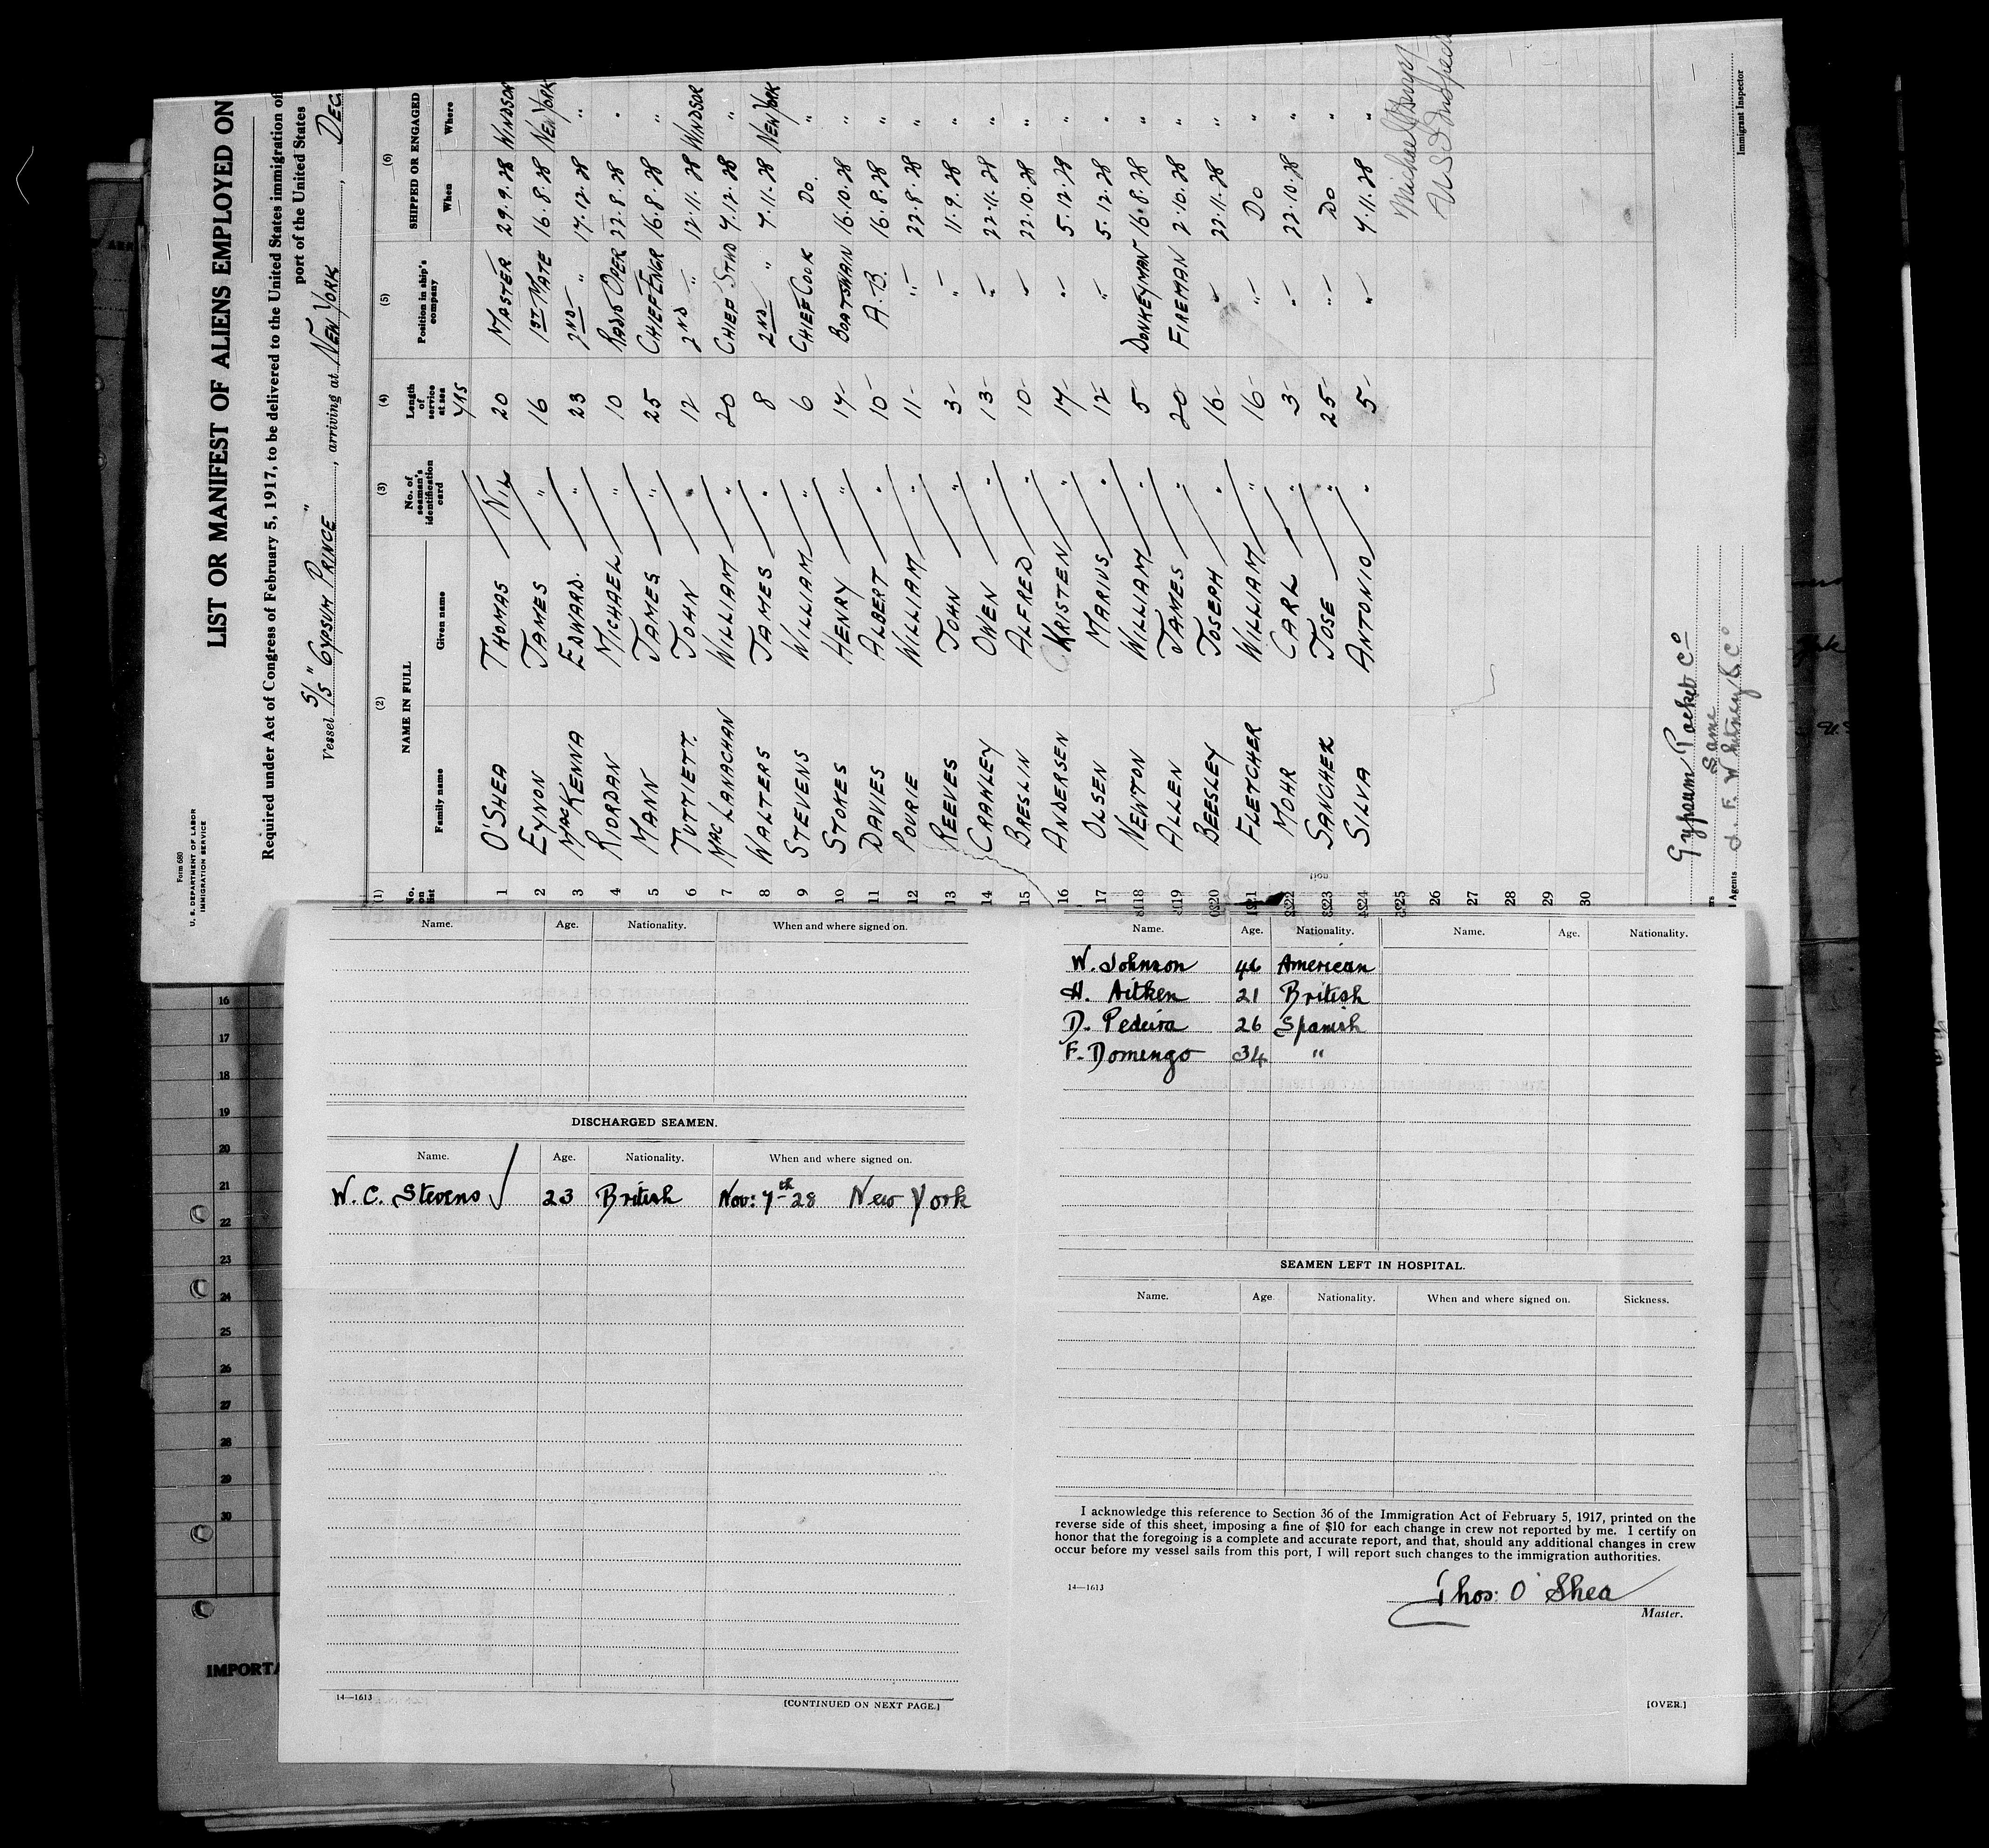 Form 680
U. S. DEPARTMENT OF LABOR
IMMIGRATION SERVICE
LIST OR MANIFEST OF ALIENS EMPLOYED ON
Required under Act of Congress of February 5, 1917, to be delivered to the United States immigration of
port of the United States
Vessel S/S "GYPSUM PRINCE", arriving at NEW YORK, DEC.
(1) (2) (3) (4) (5) (6)
No. on list NAME IN FULL No. of seaman's identification card Length of service at sea Position in ship's company SHIPPED OR ENGAGED
Family name Given name YRS When Where
1 O'SHEA THOMAS NIL 20 MASTER 29.9.28 WINDSOR
2 EYNON JAMES " 16 1ST MATE 16.8.28 NEW YORK
3 MACKENNA EDWARD. " 23 2ND " 17.12.28 "
4 RIORDAN MICHAEL " 10 RADIO OPER 22.8.28 "
5 MANN JAMES " 25 CHIEF ENGR 16.8.28 "
6 TUTTIETT. JOHN " 12 2ND " 12.11.28 WINDSOR
7 MAC LANACHAN WILLIAM " 20 CHIEF STWD 7.12.28 "
8 WALTERS JAMES " 8 2ND " 7.11.28 NEW YORK
9 STEVENS WILLIAM " 6 CHIEF COOK DO. "
10 STOKES HENRY " 17 BOATSWAIN 16.10.28 "
11 DAVIES ALBERT " 10 A.B. 16.8.28 "
12 POURIE WILLIAM " 11 " 22.8.28 "
13 REEVES JOHN " 3 " 11.9.28 "
14 CRAWLEY OWEN " 13 " 22.11.28 "
15 BRESLIN ALFRED " 10 " 22.10.28 "
16 ANDERSEN KRISTEN " 17 " 5.12.28 "
17 OLSEN MARIUS " 12 " 5.12.28 "
18 NEWTON WILLIAM " 5 DONKEYMAN 16.8.28 "
19 ALLEN JAMES " 20 FIREMAN 2.10.28 "
20 BEESLEY JOSEPH " 16 " 22.11.28 "
21 FLETCHER WILLIAM " 16 " DO "
22 MOHR CARL " 3 " 22.10.28 "
23 SANCHEZ JOSE " 25 " DO "
24 SILVA ANTONIO " 5 " 7.11.28 "
25
26
27
28
29
30
Michael
Gypsum Packet Co
Same
Agents J. F. Whitney & Co
Immigrant Inspector
16
17
18
19
20
21
22
23
24
25
26
27
28
29
30
IMPORTA
Name. Age. Nationality. When and where signed on.
DISCHARGED SEAMEN.
Name. Age. Nationality. When and where signed on.
W. C. Stevens 23 British Nov: 7th 28 New York
14—1613
[CONTINUED ON NEXT PAGE.]
Name. Age. Nationality. Name. Age. Nationality.
W. Johnson 46 American
H. Aitken 21 British
D. Pedeira 26 Spanish
F. Domingo 34 "
SEAMEN LEFT IN HOSPITAL.
Name. Age Nationality. When and where signed on. Sickness.
I acknowledge this reference to Section 36 of the Immigration Act of February 5, 1917, printed on the
reverse side of this sheet, imposing a fine of $10 for each change in crew not reported by me. I certify on
honor that the foregoing is a complete and accurate report, and that, should any additional changes in crew
occur before my vessel sails from this port, I will report such changes to the immigration authorities.
14—1613
Thos: O'Shea
Master.
[OVER.]